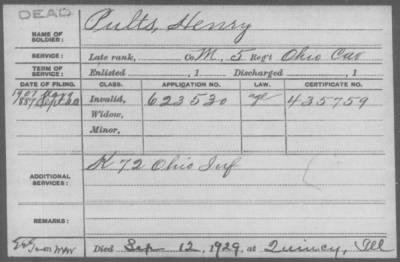 DEAD
NAME OF SOLDIER: Pults, Henry
SERVICE: Late rank, Co. M, 5 Reg't Ohio Cav
TERM OF SERVICE: Enlisted , 1 Discharged , 1
DATE OF FILING. CLASS. APPLICATION NO. LAW. CERTIFICATE NO.
1887 Invalid, 623530 435759
Widow,
Minor,
ADDITIONAL SERVICES: K 72 Ohio Inf
REMARKS:
Died Sep 12, 1929, at Quincy, Ill